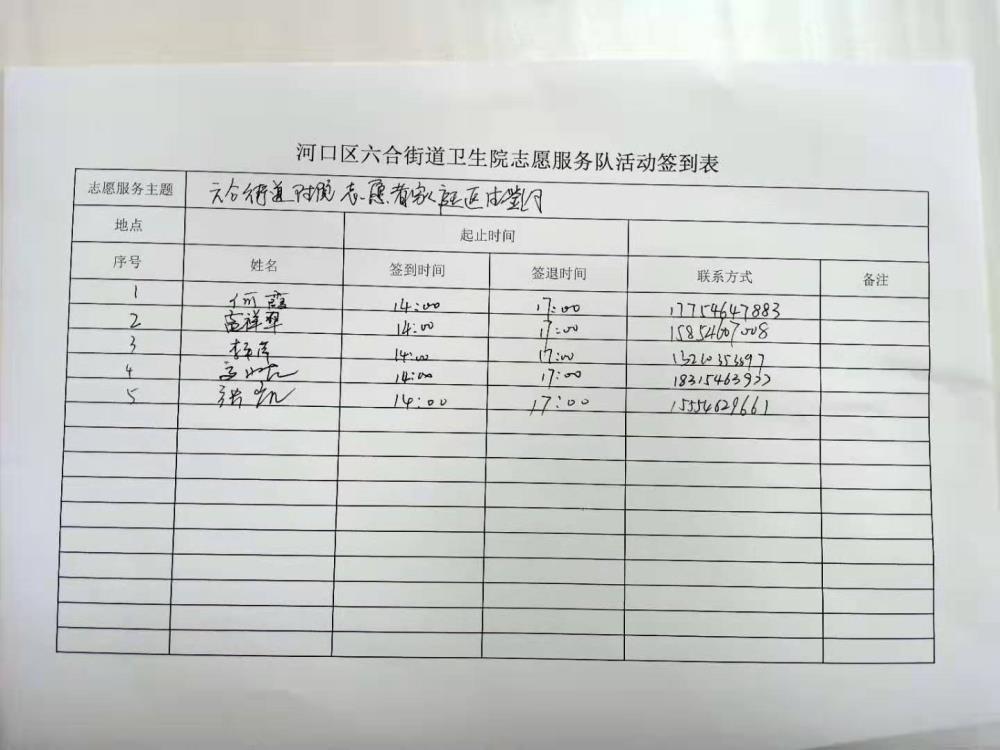 河口区六合街道卫生院志愿服务队活动签到表
志愿服务主题 六合街道 志愿者家庭医生签约
地点 起止时间
序号 姓名 签到时间 签退时间 联系方式 备注
1 何霞 14:00 17:00 17754647883
2 祥翠 14:00 17:00 15854607008
3 李 14:00 17:00
4 14:00 17:00
5 张凯 14:00 17:00 15554629661